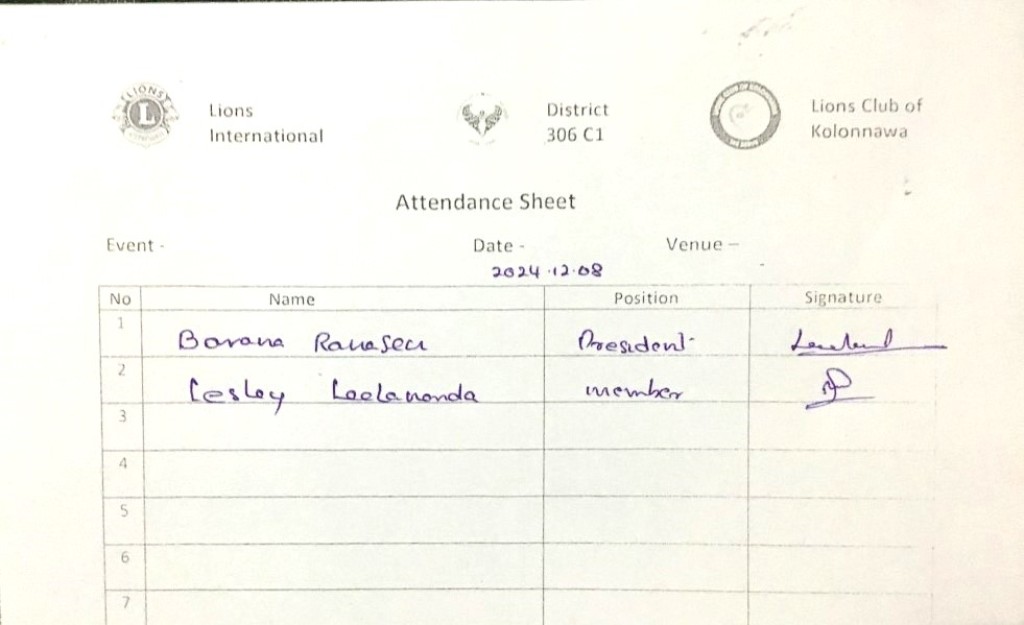 LIONS
L
Lions
International
District
306 C1
Lions Club of
Kolonnawa
Attendance Sheet
Event -
Date -
Venue –
2024.12.08
No Name Position Signature
1
Barana Ranasen President
2
Lesley Leelananda member
3
4
5
6
7